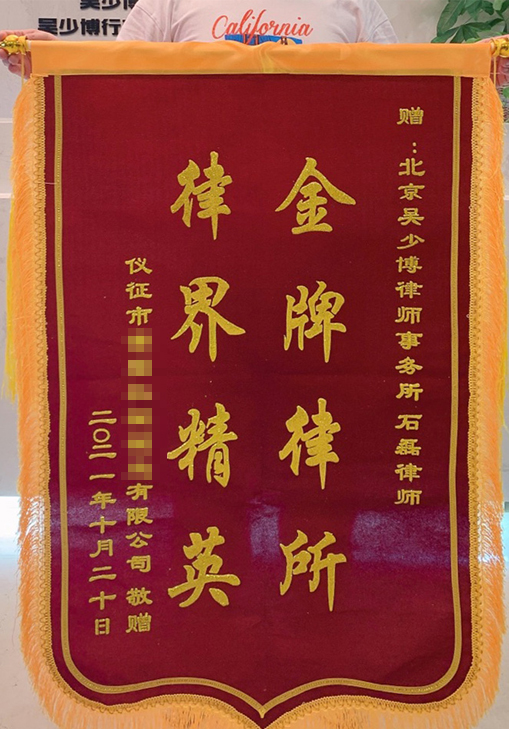 吴少博
吴少博行
California
赠：北京吴少博律师事务所石磊律师
金牌律所
律界精英
仪征市 有限公司 敬赠
二〇二一年十月二十日